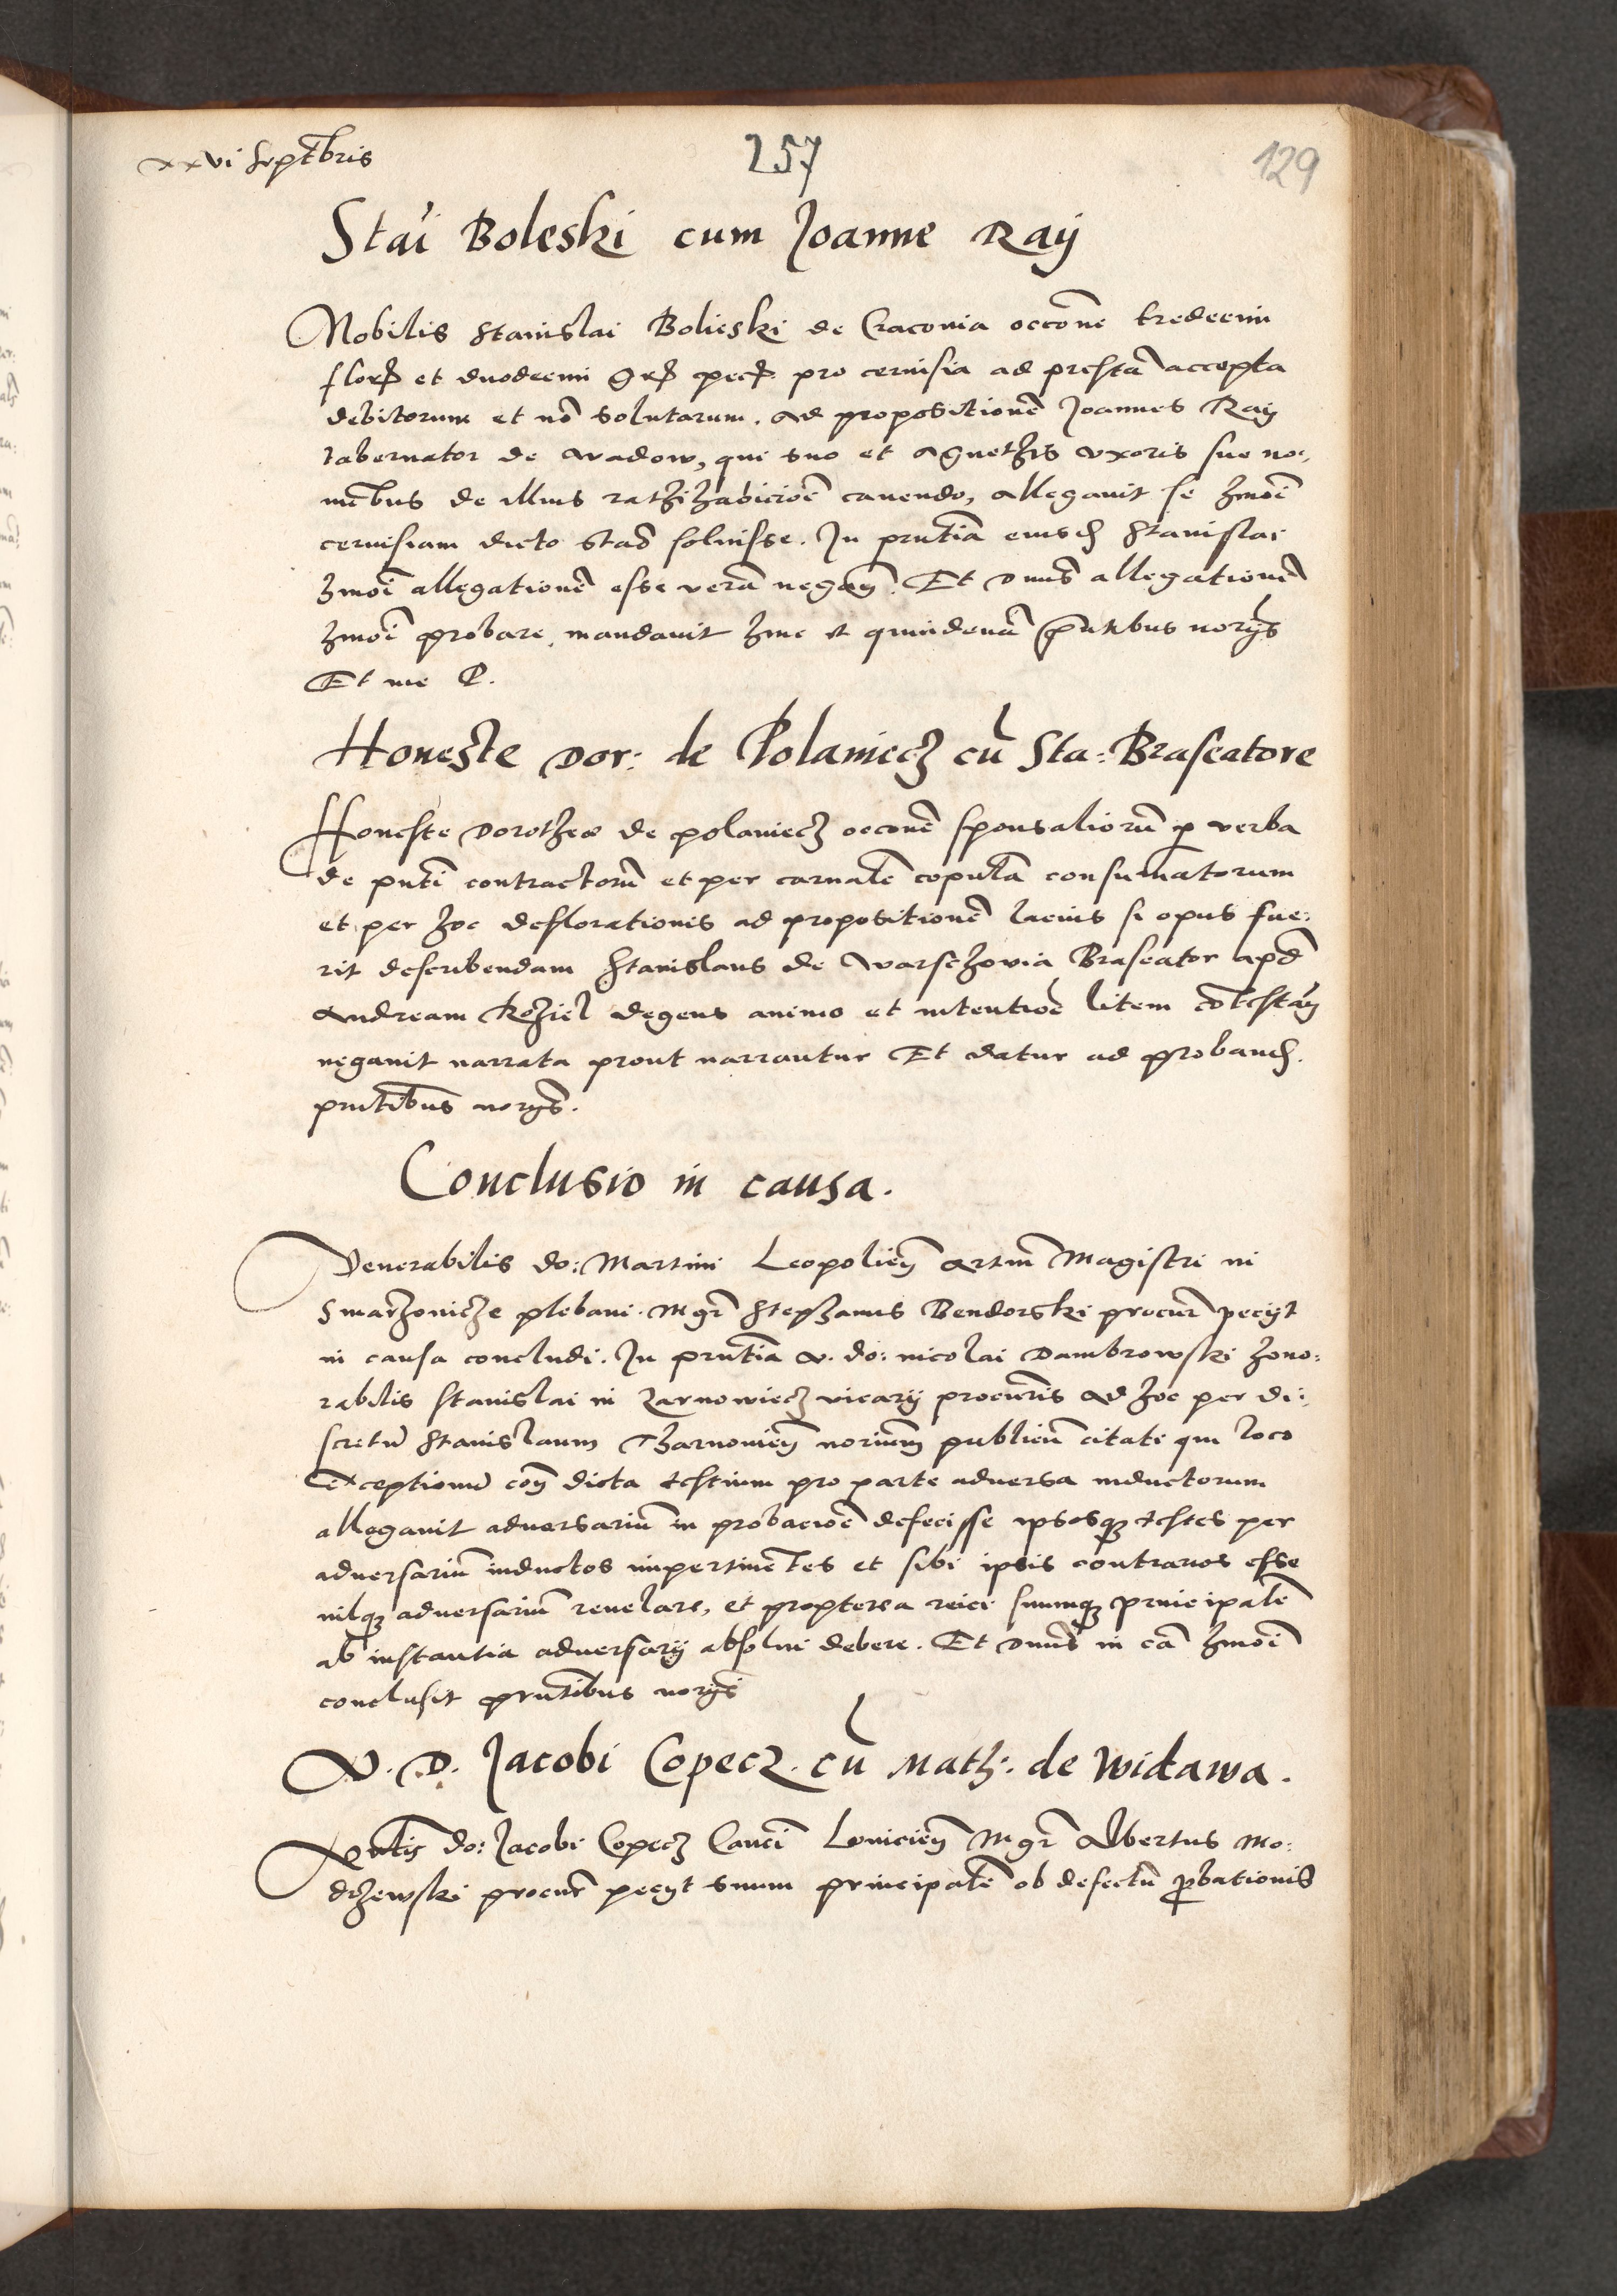 xxvi Septẽbris
257
129
Stai Boleski cum Joanne Raÿ
Nobilis Stanislai Bolieski de Cracovia occõne tredecim
flor et duodecim gr pec pro cervisia ad prestã accepta
debitorum et nõ solutarum. Ad propositionẽ Joannes Raÿ
tabernator de Wadow, qui suo et Agnethis uxoris sue no,
minẽbus de illius rathihabicioẽ cavendo, allegavit se hmõi
cervisiam dicto Stao solvisse. In pñtia eiusd Stanislai
hmõi allegationẽ esse verã negañ. Et Dnus allegationẽ
hmõi probare mandavit hinc et quindenã pñtibus norÿs
Et me P.
Honeste Dor: de Polaniecz cũ Sta: Braseatore
Honeste Dorothee de polaniecz occonẽ sponsaliorũ p verba
de pñti contractorũ et per carnalẽ copulã consumatorum
et per hoc deflorationis ad propositionẽ lacius si opus fue,
rit describendam Stanislaus de Warschovia Braseator apđ
Andream Koziel degens animo et intentioẽ litem cõtestañ
negavit narrata prout narrantur Et datur ad proband.
pñtibus norÿs.
Conclusio in causa.
Venerabilis do: Martini Leopolieñ Artiũ Magistri in
Smarzowicze plebani. Mgr Stephanus Bendorski procur pecÿt
in causa concludi. In pñtia V. do: Nicolai Dambrowski hono:
rabilis Stanislai in Zarnowiecz vicarÿ procuris ad hoc per di:
scretũ Stanislaum Tharnovieñ noriũ publicũ citati qui loco
exceptionũ coñ dicta testium pro parte adversa inductorum
allegavit adversariũ in probacioẽ defecisse ipsosq testes per
adversariũ inductos impertinẽtes et sibi ipsis contrarios esse
nilq adversariũ relevare, et propterea reici suumq principalẽ
ab instantia adversarÿ absolvi debere. Et Dnus in cã hmõi
conclusit pñtibus norÿs
V. D. Jacobi Copecz. cũ Math. de Widawa.
Vñlis do: Jacobi Copecz Canci Lovicieñ Mgr Albertus Mo:
drzewski procur pecÿt suum principalẽ ob defectũ pbationis